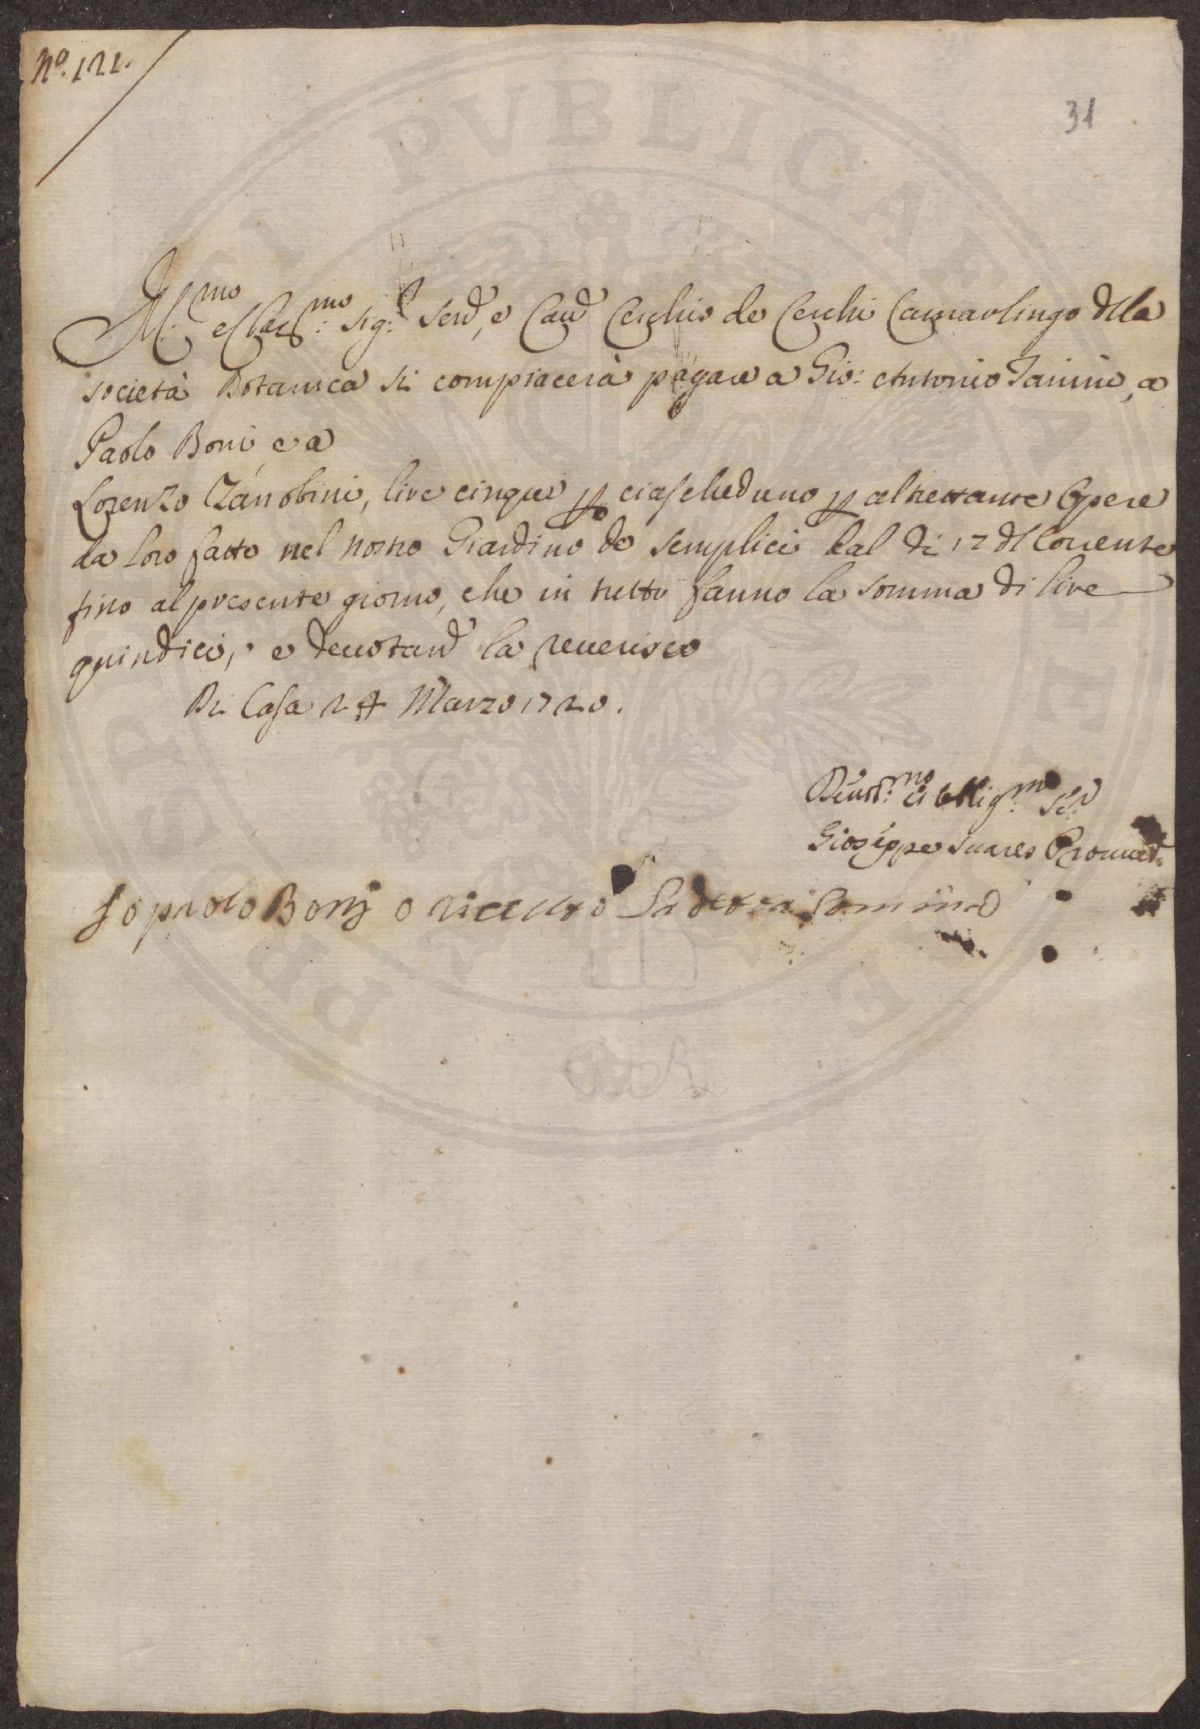 N.º 121.
31
Ill.mo e Clar.mo Sig.r Send.e e Cau.e Cerchio de Cerchi Camarlingo d'lla
società Botanica si compiacerà pagare a Gio: Antonio Janini, a
Paolo Boni e a
Lorenzo Zanobini, lire cinque p ciascheduno p altrettante Opere
da loro fatte nel nostro Giardino de semplici dal di 17 d'l Corrente
fino al presente giorno, che in tutto fanno la somma di lire
quindici, e deuotam.e la reuerisco
Di Casa 24 Marzo 1720.
Deuot.mo et obblig.mo Se.r
Gioseppe Suares Proued.e
Io paolo Bonj o riceuto la detta somma
PVBLICAE